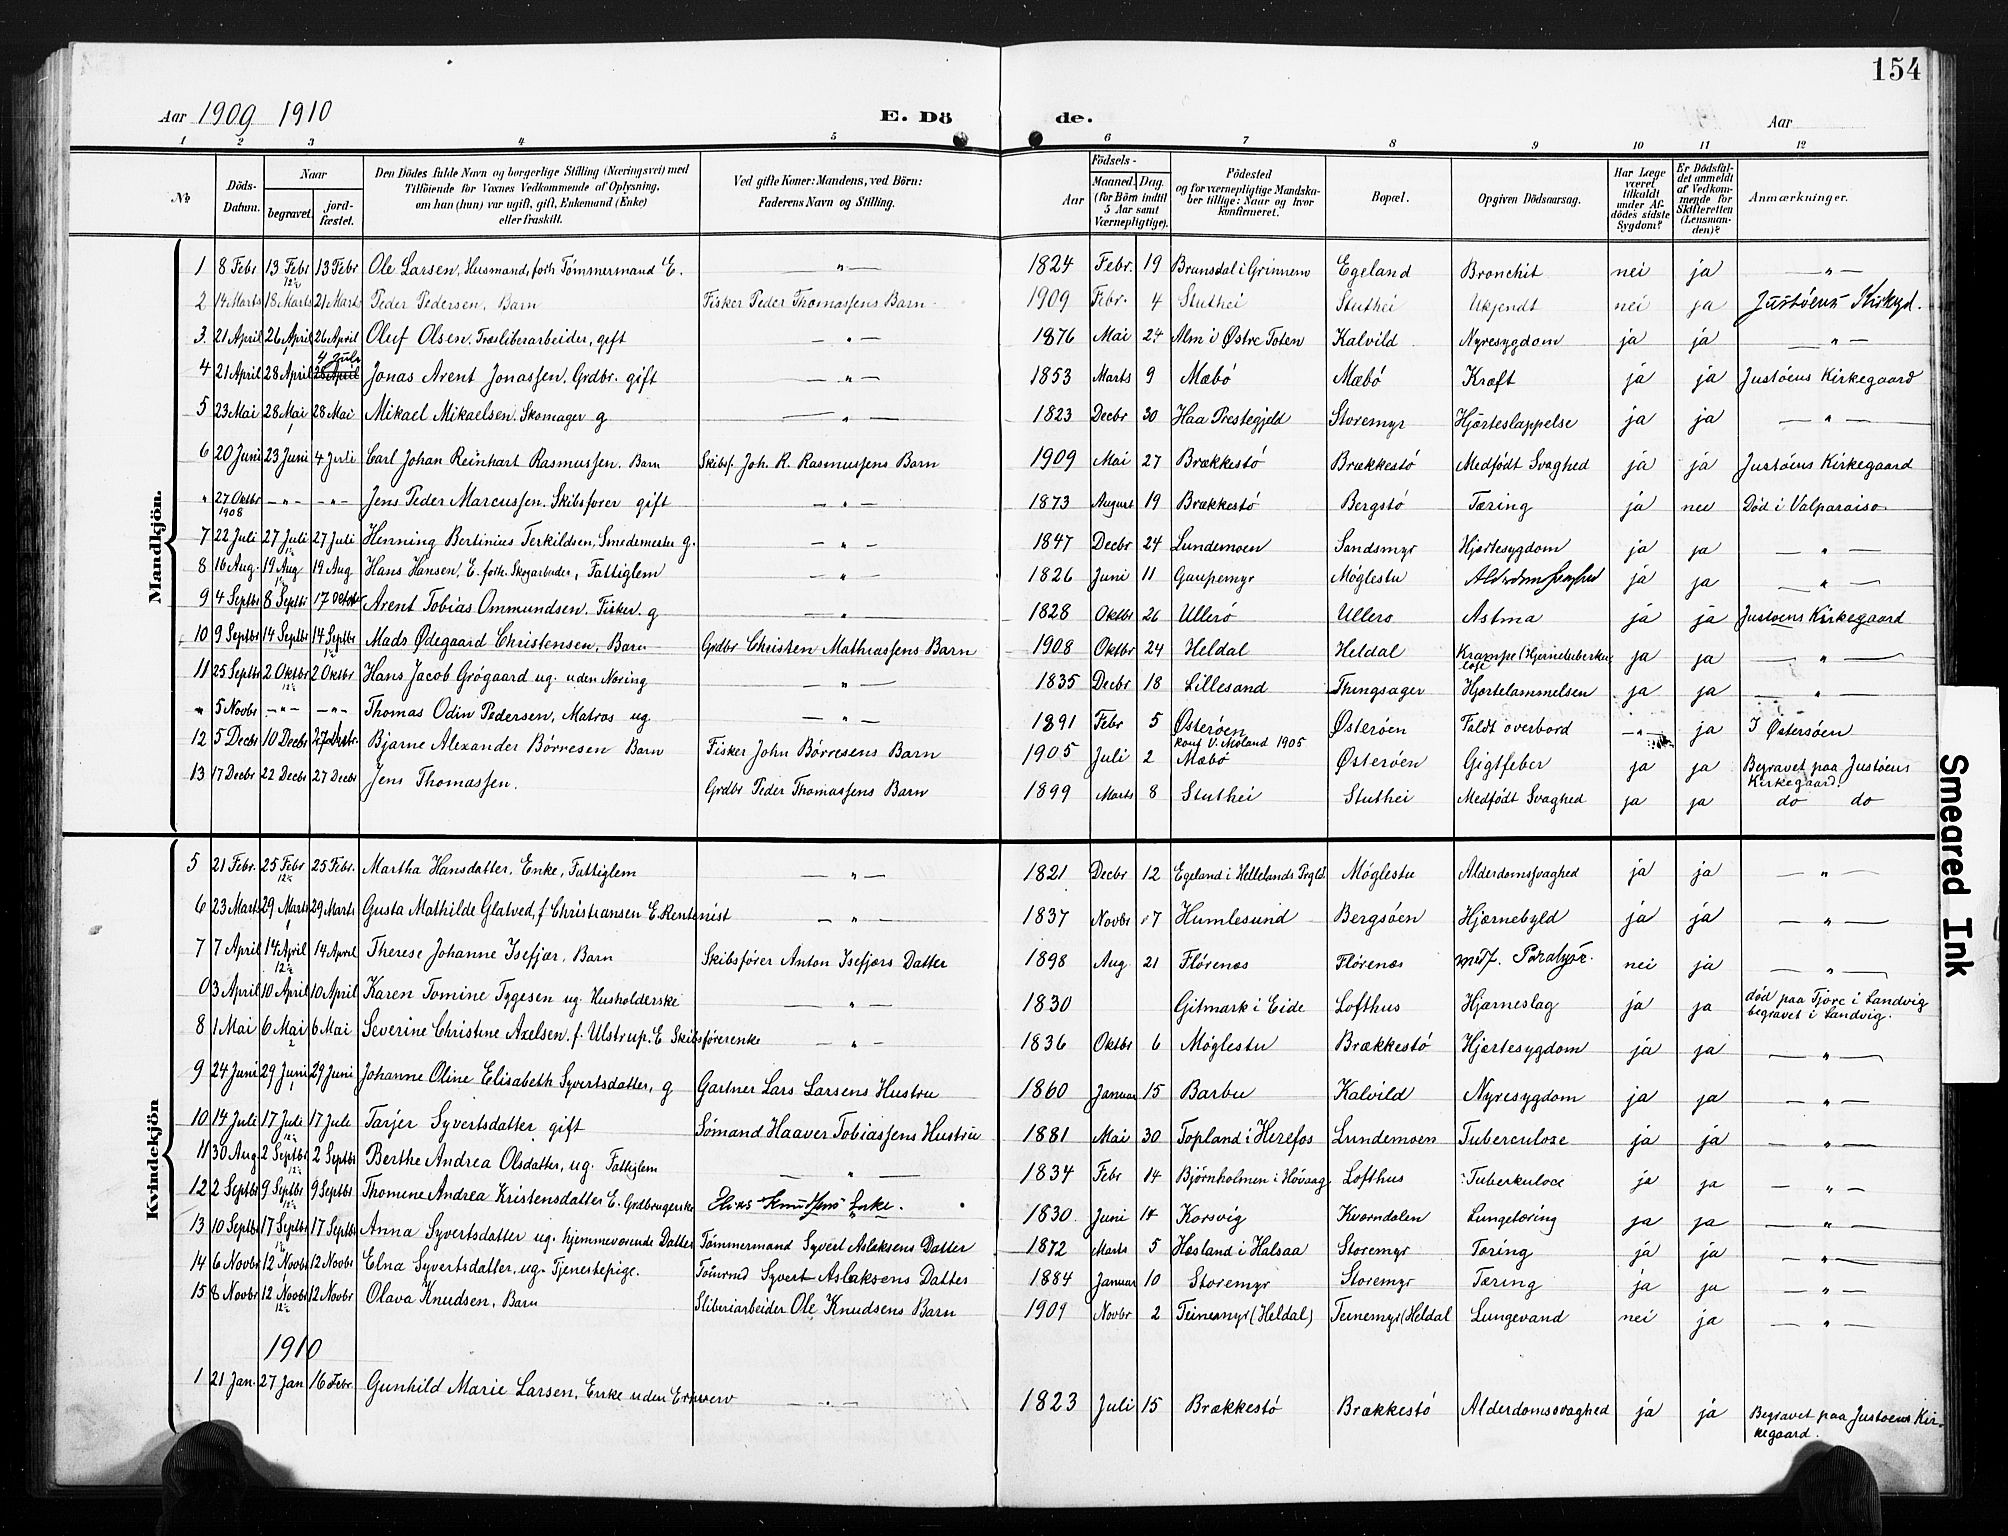 154
Aar 1909 1910 E. Dö de. Aar
1 2 3 4 5 6 7 8 9 10 11 12
No
Döds-Datum.
Naar
begravet.
jord-fæstet.
Den Dödes fulde Navn og borgerlige Stilling (Næringsvei) med
Tilföiende for Voxnes Vedkommende af Oplysning,
om han (hun) var ugift, gift, Enkemand (Enke)
eller fraskilt.
Ved gifte Koner: Mandens, ved Börn:
Faderens Navn og Stilling.
Födsels-
Aar
Maaned. Dag.
(for Börn indtil
5 Aar samt
Værnepligtige).
Födested
og for værnepligtige Mandska-
ber tillige: Naar og hvor
konfirmeret.
Bopæl.
Opgiven Dödsaarsag.
Har Læge
været
tilkaldt
under Af-
dödes sidste
Sygdom?
Er Dödsfal-
det anmeldt
af Vedkom-
mende for
Skifteretten
(Lensman-
den)?
Anmærkninger.
Mandkjön.
1 8 Febr 13 Febr 12½ 13 Febr Ole Larsen, Husmand, forh Tømmermand E. — " — 1824 Febr. 19 Brunsdal i Grinnem Egeland Bronchit nei ja — " —
2 14 Marts 18 Marts 21 Marts Peder Pedersen, Barn Fisker Peder Thomassens Barn 1909 Febr. 4 Stuthei Stuthei Ukjendt nei ja Justöens Kirkgd.
3. 21 April 26 April 26 April Oluf Olsen, Træsliberarbeider, gift — " — 1876 Mai 24 Alm i Østre Toten Kalvild Nyresygdom ja ja — " —
4 21 April 28 April 4 Juli 28 April Jonas Arent Jonassen, Grdbr. gift — " — 1853 Marts 9 Mæbö Mæbö Kræft ja ja Justöens Kirkegaard
5 23 Mai 28 Mai 28 Mai Mikael Mikaelsen. Skomager g — " — 1823 Decbr 30 Haa Prestegjeld Storemyr Hjerteslappelse ja ja — " —
6 20 Juni 23 Juni 4 Juli Carl Johan Reinhart Rasmussen. Barn Skibsf. Joh. R. Rasmussens Barn 1909 Mai 27 Brækkestö Brækkestö Medfödt Svaghed ja ja Justöens Kirkegaard
" 27 Oktbr 1908 — " — — " — Jens Peder Marcussen. Skibsfører gift — " — 1873 August 19 Brækkestö Bergstö Tæring ja nei Död i Valparaiso
7 22 Juli 27 Juli 27 Juli Henning Bertinius Terkildsen, Smedemester g. — " — 1847 Decbr 24 Lundemoen Sandsmyr Hjertesygdom ja ja — " —
8 16 Aug 19 Aug 19 Aug Hans Hansen, E. forh. Skogarbeider, Fattiglem — " — 1826 Juni 11 Gaupemyr Möglestu Alderdomssvaghed ja ja — " —
9 4 Septbr 8 Septbr 17 Octobr Arent Tobias Ommundsen. Fisker. g — " — 1828 Oktbr 26 Ullerö Ullerö Astma ja ja Justöens Kirkegaard
10 9 Septbr 14 Septbr 14 Septbr Mads Ødegaard Christensen, Barn Grdbr Christen Mathiassens Barn 1908 Oktbr 24 Heldal Heldal Krampe (Hjerntuberkulose ja ja — " —
11 25 Septbr 2 Oktbr 12½ 2 Oktbr Hans Jacob Grögaard ug. uden Næring — " — 1835 Decbr 18 Lillesand Thingsager Hjertelammelsen ja ja — " —
" 5 Novbr — " — — " — Thomas Odin Pedersen, Matros ug — " — 1891 Febr 5 Østeröen konf V. Moland 1905 Østeröen Faldt overbord — " — ja I Østersöen
12 5 Decbr 10 Decbr 27 Decbr. Bjarne Alexander Börresen Barn Fisker John Börresens Barn 1905 Juli 2 Mæbö Østeröen Gigtfeber ja ja Begravet paa Justöens Kirkegaard.
13 17 Decbr 22 Decbr 27 Decbr Jens Thomassen. Grdbr Peder Thomassens Barn 1899 Marts 8 Stuthei Stuthei Medfödt Svaghed ja ja do do
Kvindekjön
5 21 Febr. 25 Febr 12½ 25 Febr. Martha Hansdatter, Enke, Fattiglem — " — 1821 Decbr 12 Egeland i Hellelands Prgld. Möglestu Alderdomssvaghed ja ja — " —
6 23 Marts 29 Marts 29 Marts Gusta Mathilde Glatved, f Christiansen E. Rentenist — " — 1837 Novbr 17 Humlesund Bergsöen Hjærnebyld ja ja — " —
7 7 April 14 April 12½ 14 April Therese Johanne Isefjær, Barn Skibsförer Anton Isefjærs Datter 1898 Aug 21 Flörenæs Flörenæs Paralyse. nei ja — " —
0 3 April 10 April 10 April Karen Tomine Tygesen ug. Husholderske — " — 1830 Gitmark i Eide Lofthus Hjærneslag ja ja död paa Fjöre i Landvig begravet i Landvig.
8 1 Mai 6 Mai 2 6 Mai Severine Christine Axelsen, f. Ulstrup. E Skibsförerenke — " — 1836 Oktbr 6 Möglestu Brækkestö Hjertesygdom ja ja — " —
9 24 Juni 29 Juni 29 Juni Johanne Oline Elisabeth Syvertsdatter, g Gartner Lars Larsens Hustru 1860 Januar 15 Barbu Kalvild Nyresygdom ja ja — " —
10 14 Juli 17 Juli 12½ 17 Juli Tarjer Syvertsdatter gift Sömand Haaver Tobiassens Hustru 1881 Mai 30 Topland i Herefos Lundemoen Tuberculoze ja ja — " —
11 30 Aug 2 Septbr 12½ 2 Septbr Berthe Andrea Olsdatter, ug. Fattiglem — " — 1834 Febr 14 Bjørnholmen i Hövaag Lofthus Tuberkuloce ja ja — " —
12 2 Septbr 9 Septbr 12½ 9 Septbr Thomine Andrea Kristensdatter E. Grdbrugerske Knudsens Enke. 1830 Juni 14 Korsvig Kvarndalen Lungetæring ja ja — " —
13 10 Septbr 17 Septbr 17 Septbr Anna Syvertsdatter ug. hjemmeværende Datter Tömmermand Syvert Aslaksens Datter 1872 Marts 5 Høsland i Halsaa Storemyr Tæring ja ja — " —
14 6 Novbr 12 Novbr 12 Novbr Elna Syvertsdatter, ug. Tjenestepige. Tömrmd Syvert Aslaksens Datter 1884 Januar 10 Storemyr Storemyr Tæring ja ja — " —
15 8 Novbr 12 Novbr 12½ 12 Novbr Olava Knudsen, Barn Sliberiarbeider Ole Knudsens Barn 1909 Novbr 2 Teinemyr (Heldal) Teinemyr (Heldal Lungevand nei ja — " —
1910
1 21 Jan. 27 Jan 16 Febr. Gunhild Marie Larsen, Enke uden Erhverv — " — 1823 Juli 15 Brækkestö Brækkestö Alderdomssvaghed ja ja Begravet paa Justöens Kirkegaard.
Smeared Ink